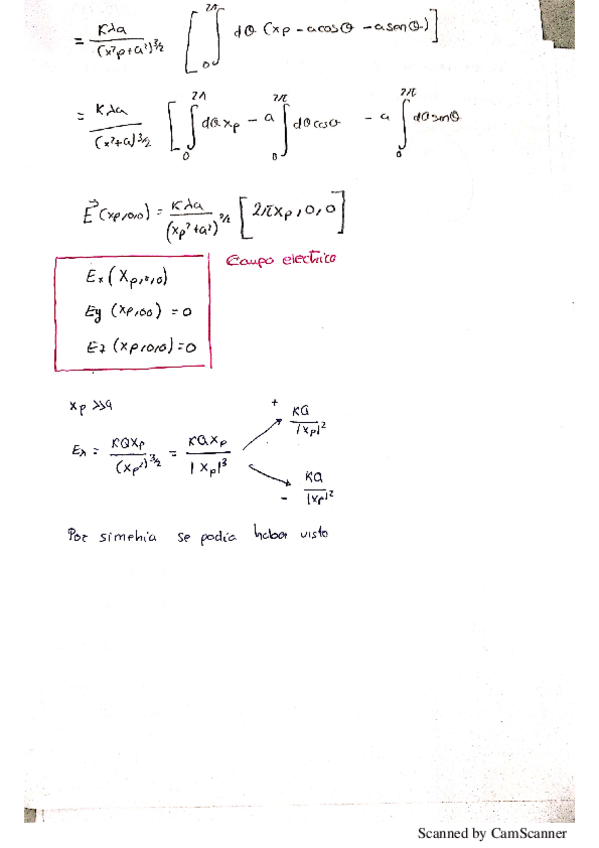 = Kλa/(x²p+a²)^3/2 [∫₀^2π dθ (xp - acosθ - asenθ)]
= Kλa/(x²+a)^3/2 [∫₀^2π dθ xp - a ∫₀^2π dθ cosθ - a ∫₀^2π dθ senθ
E⃗(xp,0,0) = Kλa/(xp²+a²)^3/2 [2πxp, 0, 0]
Campo electrico
Ex(Xp,0,0)
Ey (xp,00) = 0
Ez (xp,0,0) = 0
xp >>a
Ex = KQXp/(xp²)^3/2 = KQXp/|Xp|³
+ KQ/|xp|²
- KQ/|xp|²
Por simetria se podia haber visto
Scanned by CamScanner